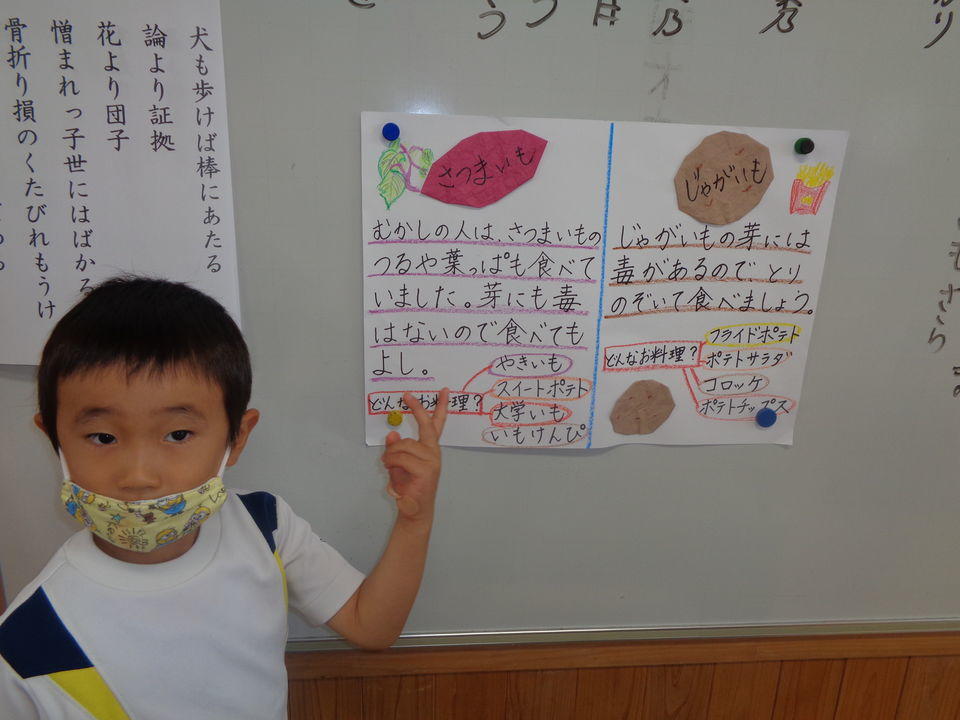 犬も歩けば棒にあたる
論より証拠
花より団子
憎まれっ子世にはばかる
骨折り損のくたびれもうけ
さつまいも
むかしの人は、さつまいもの
つるや葉っぱも食べて
いました。芽にも毒
はないので食べても
よし。
どんなお料理?
やきいも
スイートポテト
大学いも
いもけんぴ
じゃがいも
じゃがいもの芽には
毒があるので、とり
のぞいて食べましょう。
どんなお料理?
フライドポテト
ポテトサラダ
コロッケ
ポテトチップス